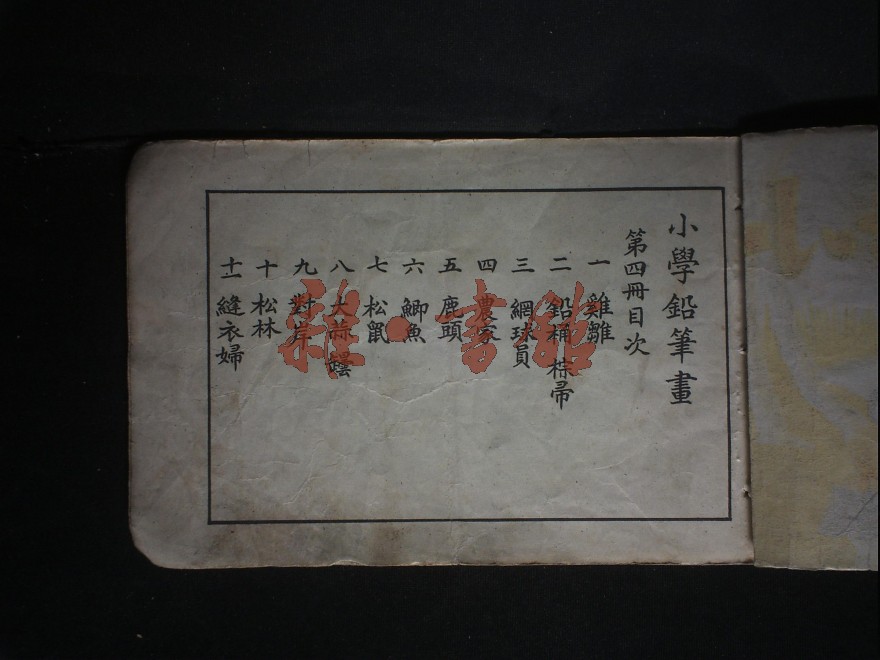 小學鉛筆畫
第四冊目次
一 雞雛
二 鉛桶 棕帚
三 網球員
四 農家
五 鹿頭
六 鯽魚
七 松鼠
八 大蒜 蝠
九 對岸
十 松林
十一 縫衣婦
雜·書館